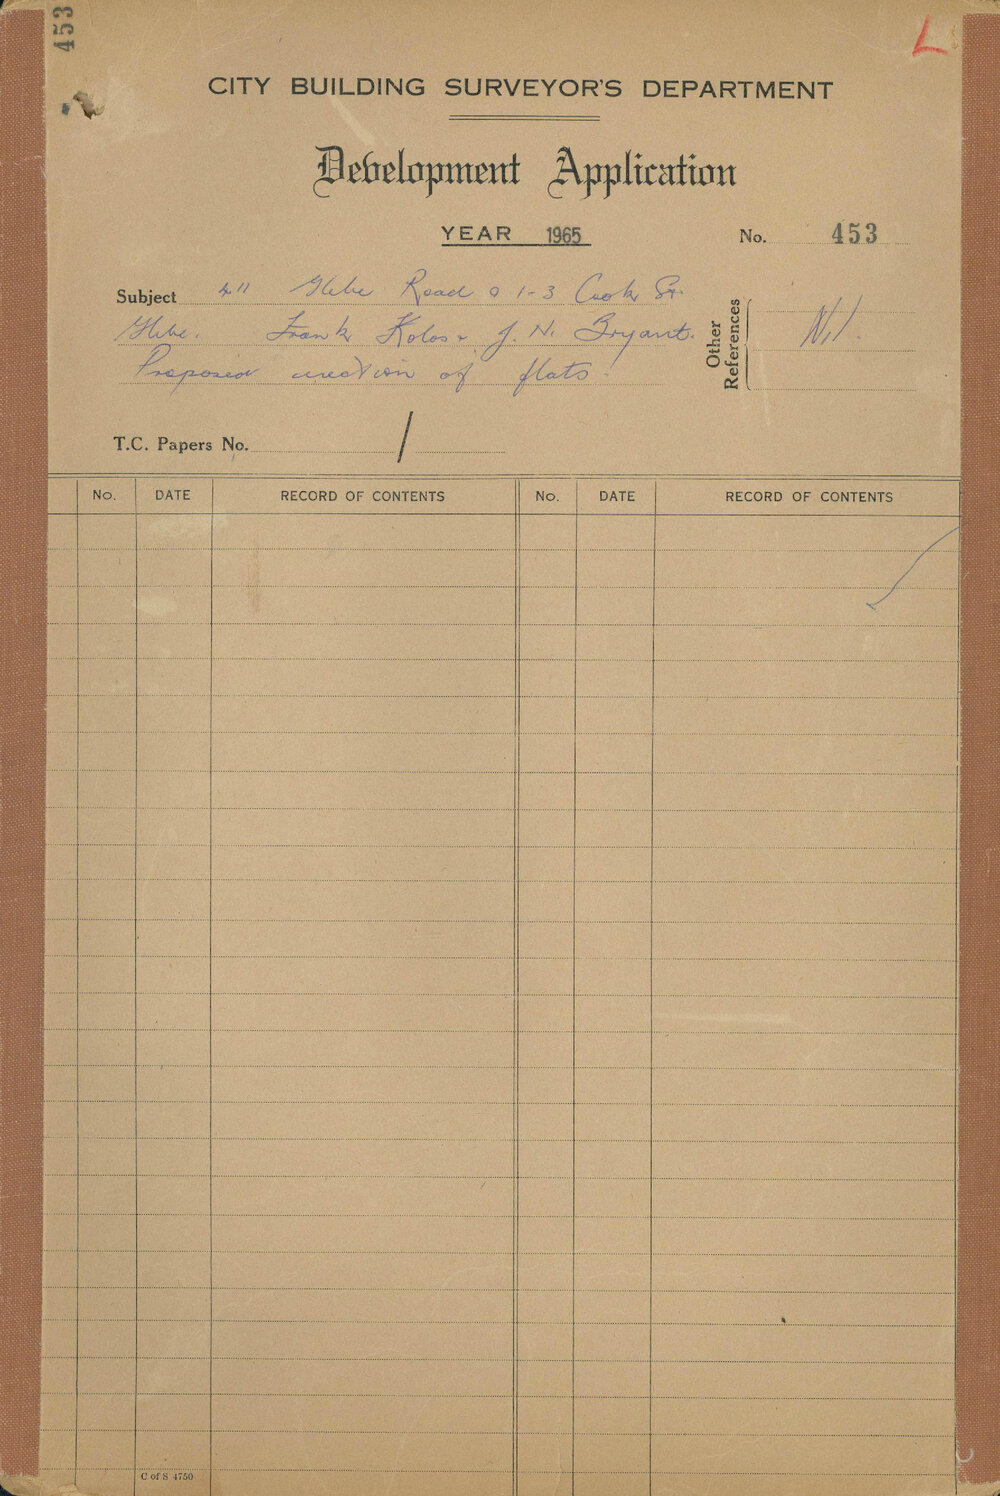 453
L
CITY BUILDING SURVEYOR'S DEPARTMENT
Development Application
YEAR 1965
No. 453
Subject 411 Glebe Road & 1-3 Cook St.
Glebe. Frank Kolos & J. N. Bryant.
Proposed erection of flats.
Other References Nil.
T.C. Papers No. /
No. DATE RECORD OF CONTENTS No. DATE RECORD OF CONTENTS
C of S 4750